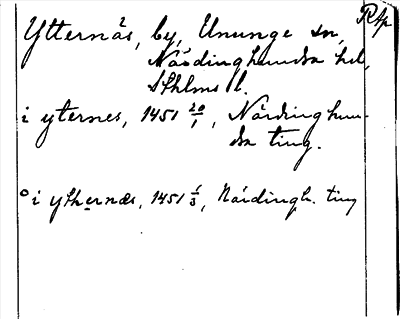 Ytternäs, by, Ununge sn,
Närdinghundra hd,
Sthlms l.
i yternes, 1451 20/1, Närdinghun-
dra ting.
° i ythernæs, 1451 1/3, Närdingh. ting